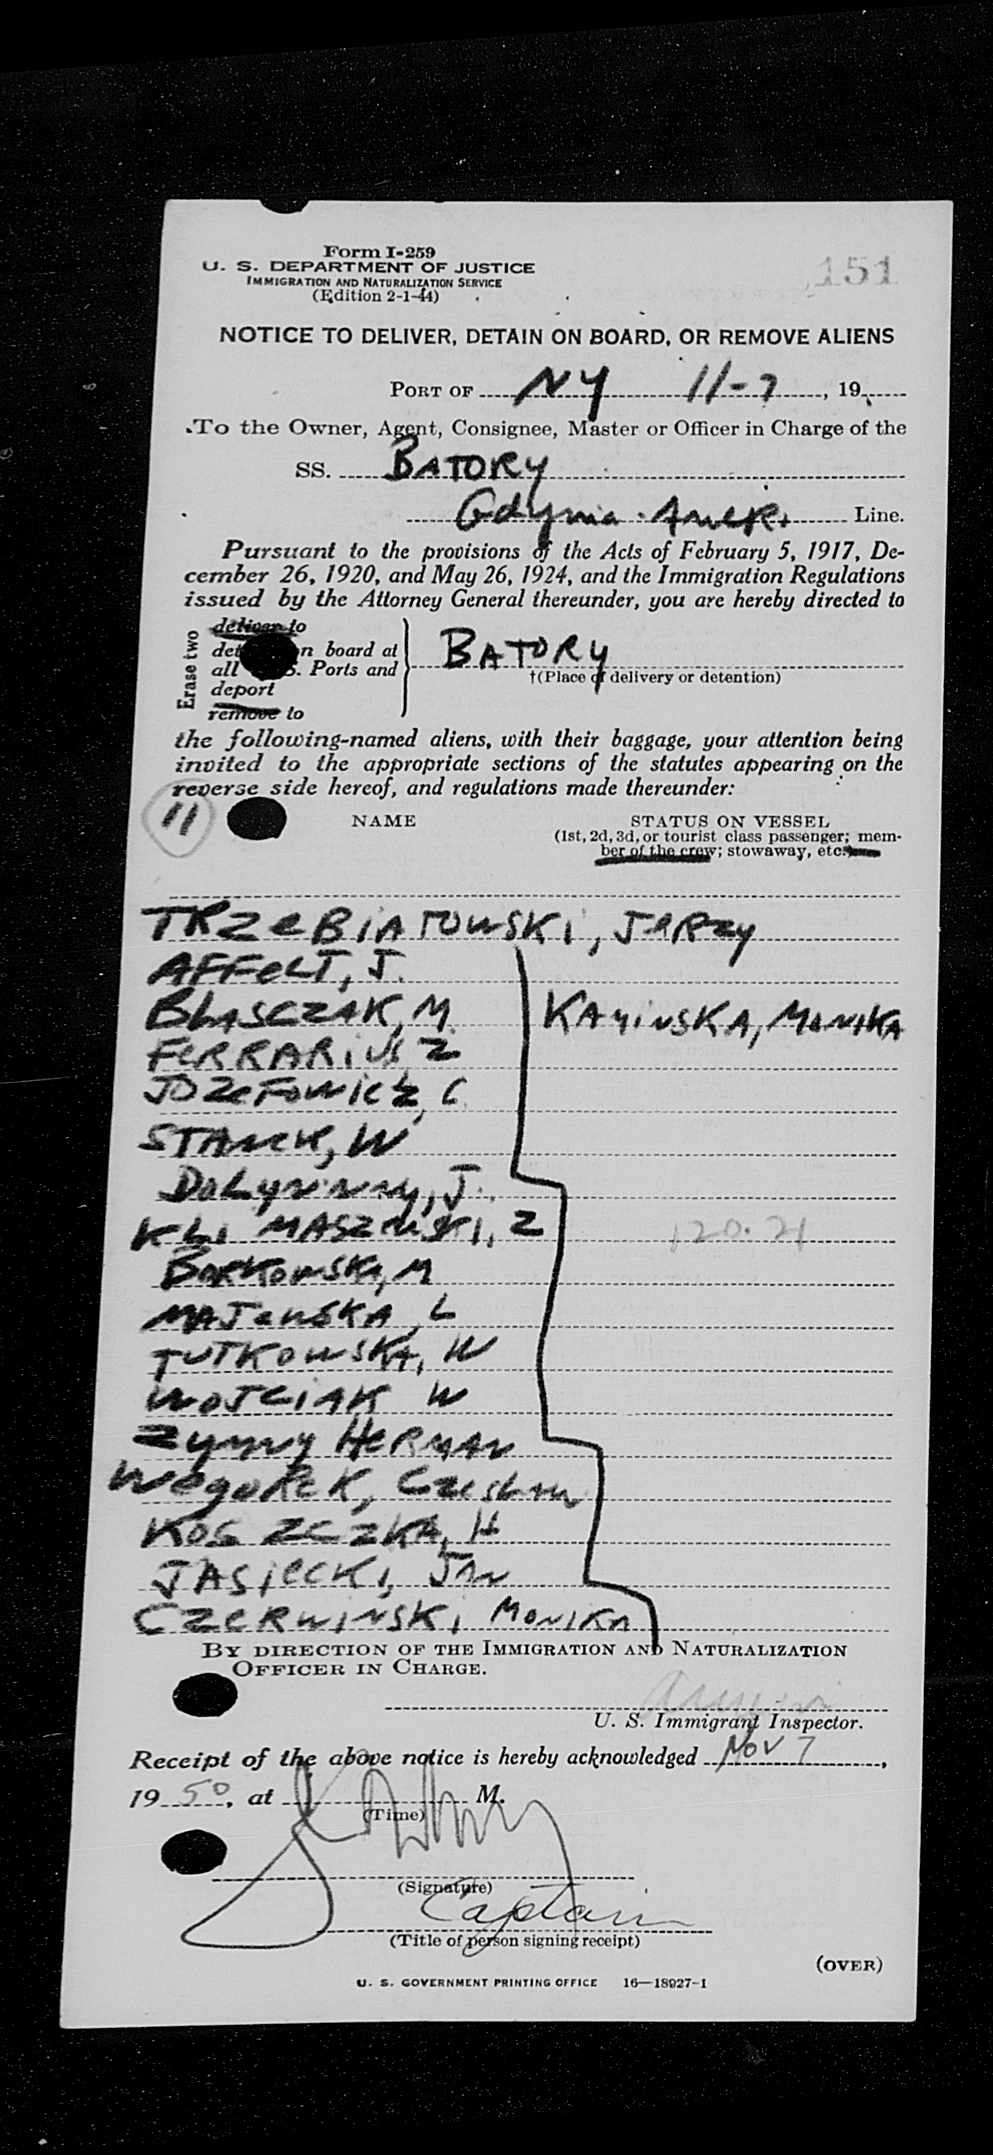 Form I-259
U. S. DEPARTMENT OF JUSTICE
IMMIGRATION AND NATURALIZATION SERVICE
(Edition 2-1-44)
151
NOTICE TO DELIVER, DETAIN ON BOARD, OR REMOVE ALIENS
PORT OF NY 11-7, 19
To the Owner, Agent, Consignee, Master or Officer in Charge of the
SS. BATORY
Gdynia-Amer. Line.
Pursuant to the provisions of the Acts of February 5, 1917, De-
cember 26, 1920, and May 26, 1924, and the Immigration Regulations
issued by the Attorney General thereunder, you are hereby directed to
Erase two
deliver to
det n board at
all S. Ports and
deport
remove to
BATORY
†(Place of delivery or detention)
the following-named aliens, with their baggage, your attention being
invited to the appropriate sections of the statutes appearing on the
reverse side hereof, and regulations made thereunder:
11
NAME
STATUS ON VESSEL
(1st, 2d, 3d, or tourist class passenger; mem-
ber of the crew; stowaway, etc.
TRZEBIATOWSKI, JERZY
AFFELT, J.
BLASCZAK, M. KAMINSKA, MONIKA
FERRARIUS Z
JOZEFOWICZ, C.
STANEK, W
DOLYNNY, J.
KLIMASZEWSKI, Z
120.21
BORKOWSKA, M
MAJEWSKA, L
TUTKOWSKA, W
WOJCIAK W
ZYMNY HERMAN
WEGOREK, CZESLAW
KOSZCZKA, H
JASIECKI, JAN
CZERWINSKI MONIKA
BY DIRECTION OF THE IMMIGRATION AND NATURALIZATION
OFFICER IN CHARGE.
U. S. Immigrant Inspector.
Receipt of the above notice is hereby acknowledged Nov 7,
1950, at M.
(Time)
(Signature)
Captain
(Title of person signing receipt)
(OVER)
U. S. GOVERNMENT PRINTING OFFICE 16—18927-1